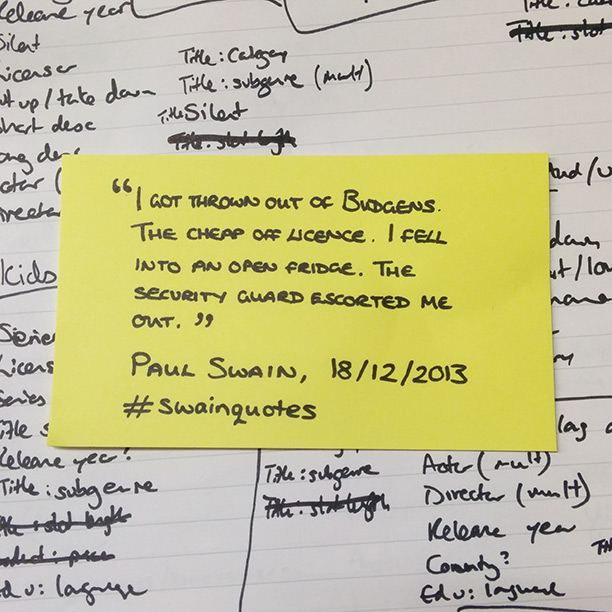 Release year
Silent
Licensor
Title: Category
Title: subgenre (mult)
Title Silent
Title: slot length
put up/take down
short desc
long desc
Kids
"I GOT THROWN OUT OF BUDGENS.
THE CHEAP OFF LICENCE. I FELL
INTO AN OPEN FRIDGE. THE
SECURITY GUARD ESCORTED ME
OUT."
PAUL SWAIN, 18/12/2013
#swainquotes
Series
Licensor
Series
Title
Release year?
Title: subgenre
Title: slot length
Ed v: language
Title: subgenre
Title: slot length
Actor (mult)
Director (mult)
Release year
Country?
Ed v: